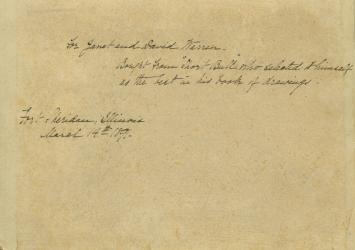 For Janet and David Warren.
Bought from "Short Bull" who selected it himself
as the best in his book of drawings.
Fort Sheridan, Illinois
March 14th